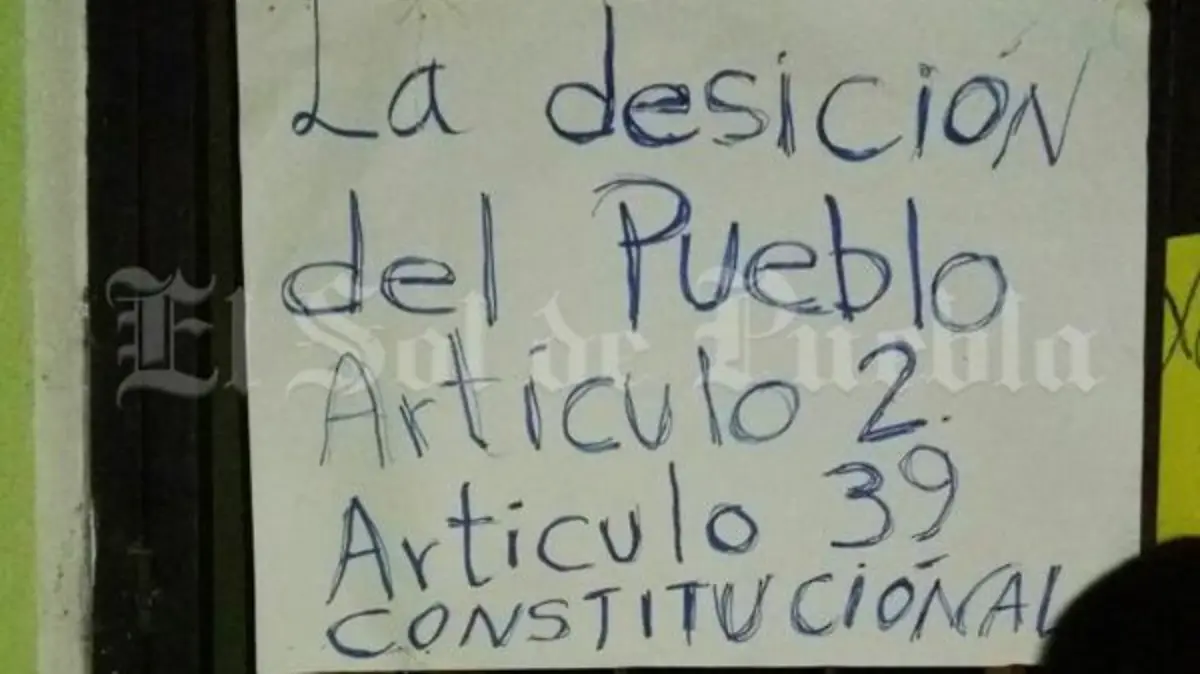 La desición
del Pueblo
Articulo 2.
Articulo 39
CONSTITUCIÓNAL
El Sol de Puebla